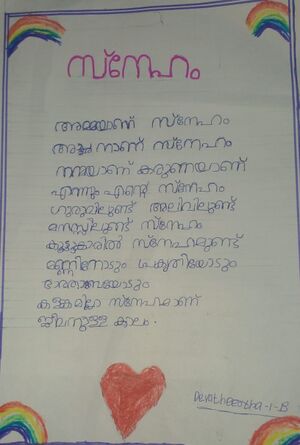 സ്നേഹം
അമ്മയാണ് സ്നേഹം
അച്ഛനാണ് സ്നേഹം
നന്മയാണ് കരുണയാണ്
എന്നും എന്റെ സ്നേഹം
ഗുരുവിലുണ്ട് അലിവിലുണ്ട്
മനസ്സിലുണ്ട് സ്നേഹം
കൂട്ടുകാരിൽ സ്നേഹമുണ്ട്
മണ്ണിനോടും പ്രകൃതിയോടും
കളങ്കമില്ലാ സ്നേഹമാണ്
ജീവനുള്ള കാലം.
-1-B